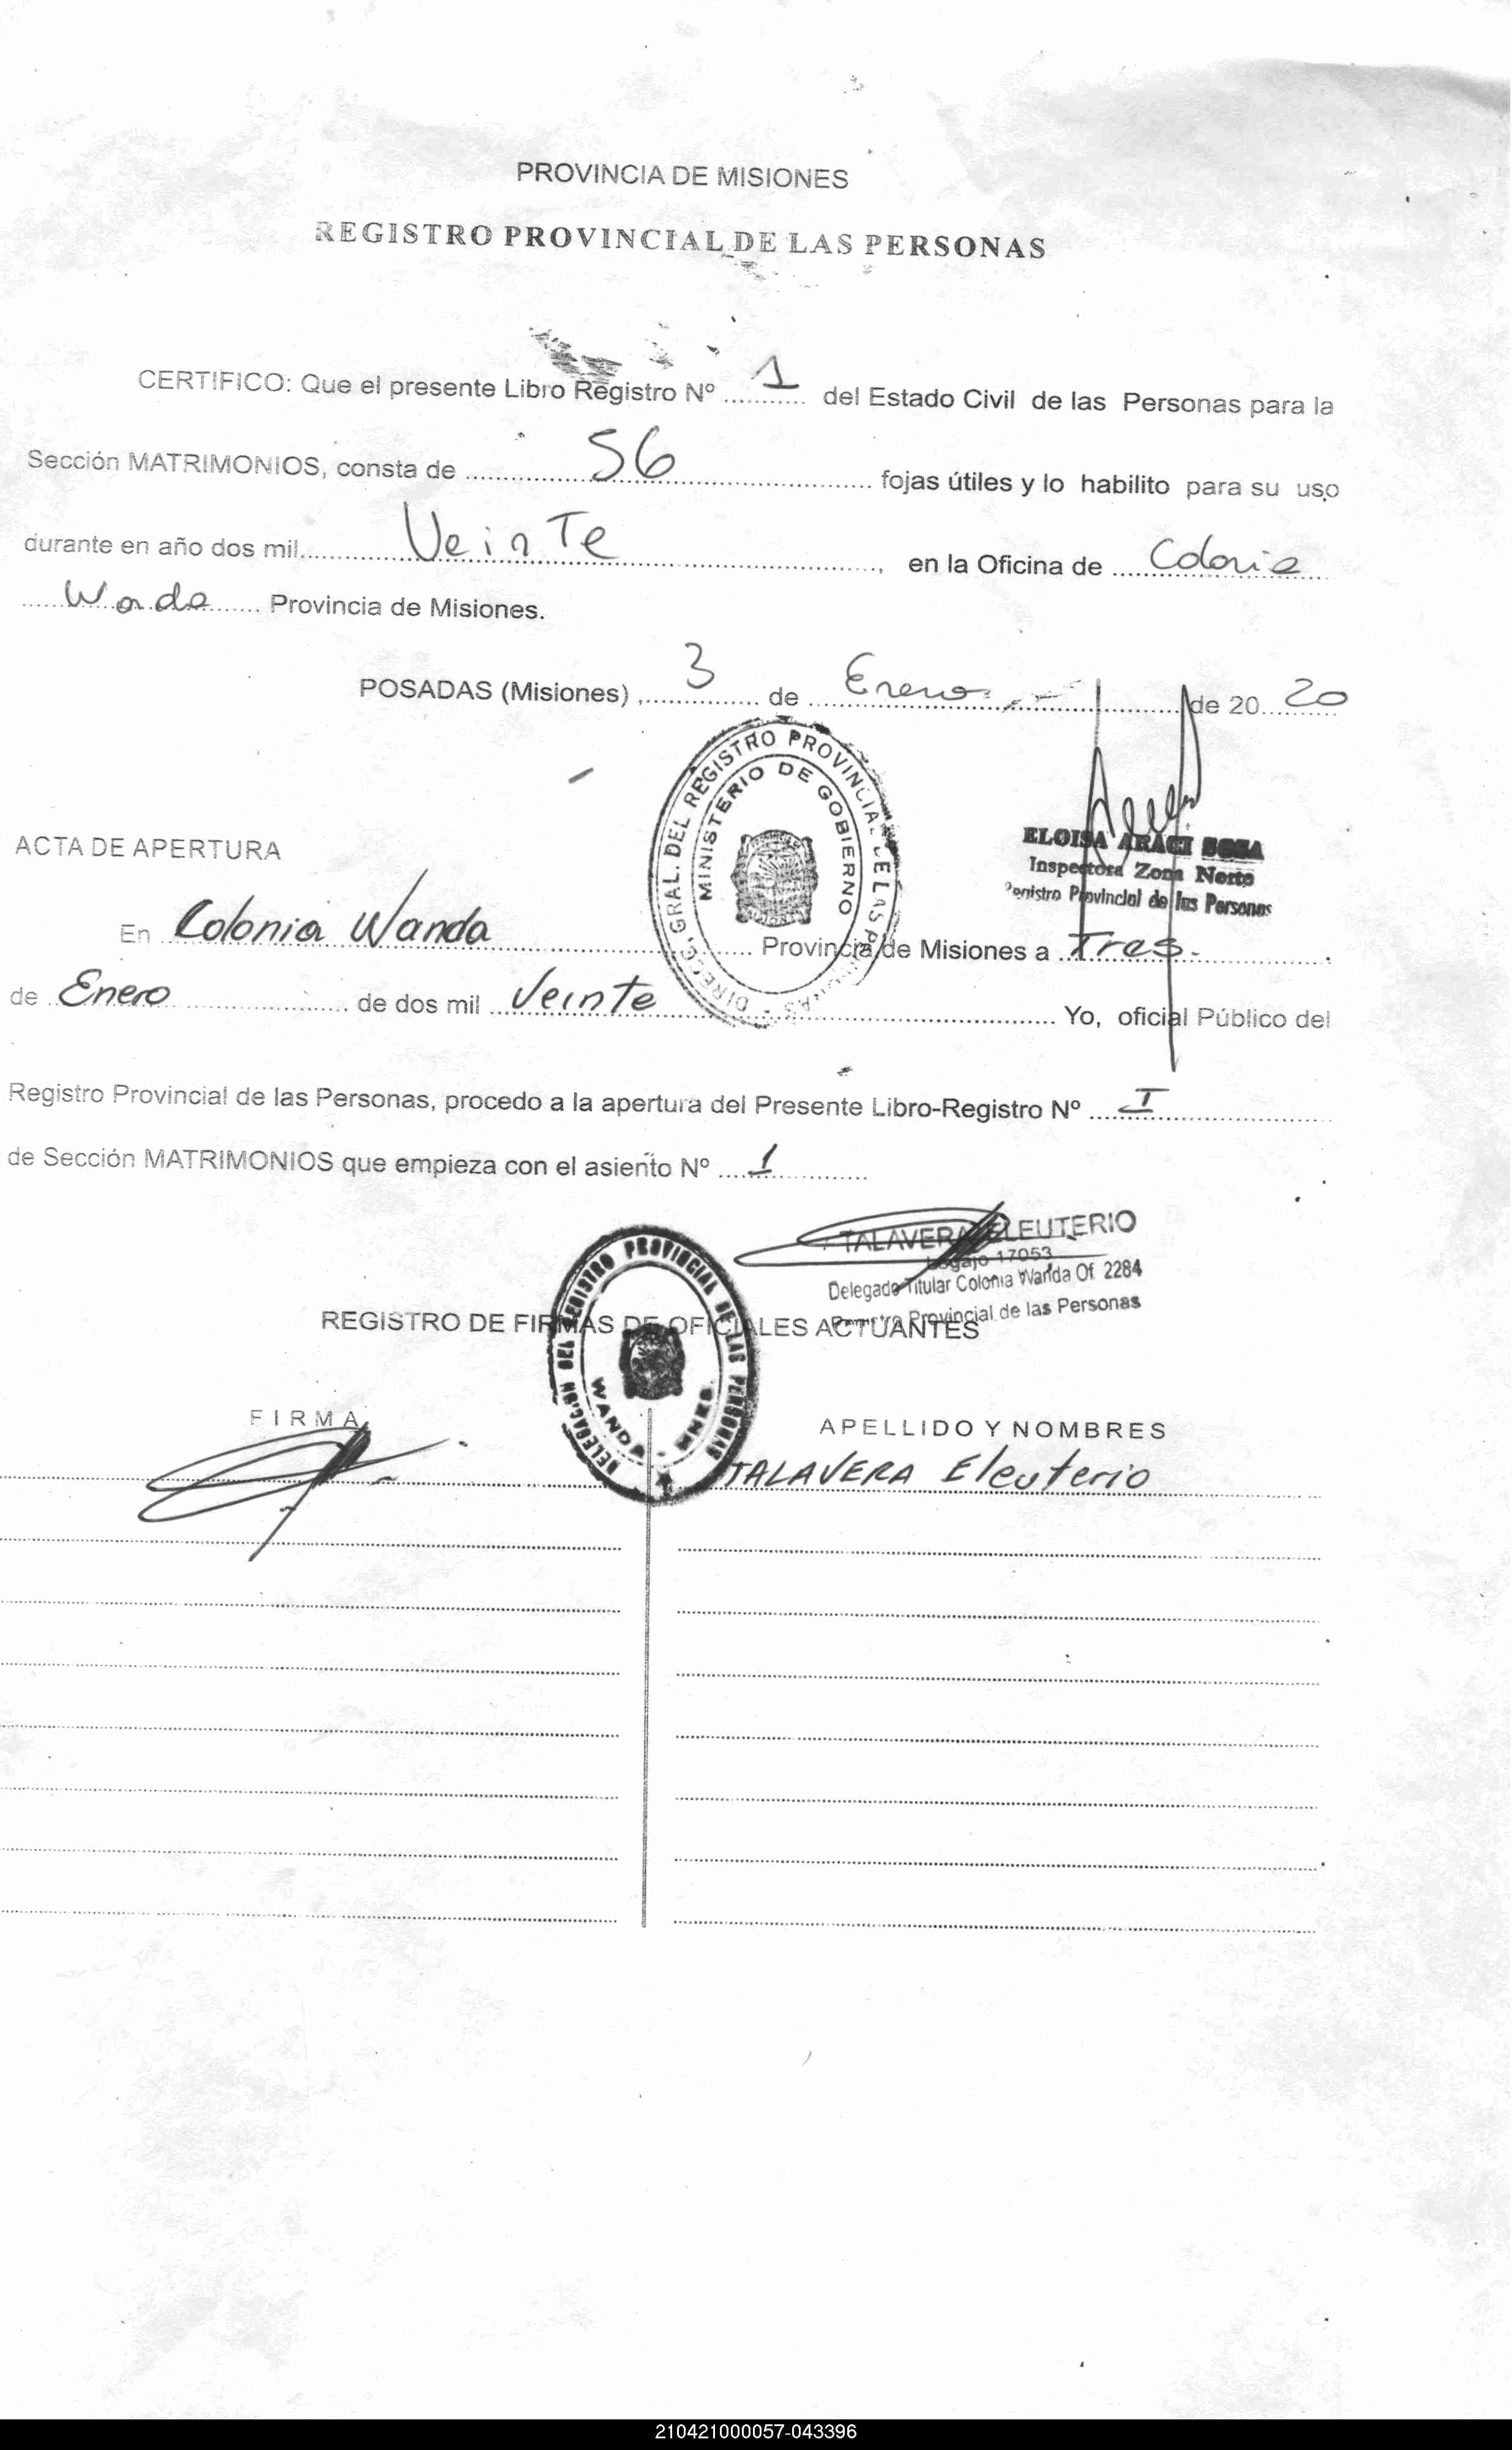 PROVINCIA DE MISIONES
REGISTRO PROVINCIAL DE LAS PERSONAS
CERTIFICO: Que el presente Libro Registro Nº 1 del Estado Civil de las Personas para la
Sección MATRIMONIOS, consta de 56 fojas útiles y lo habilito para su uso
durante en año dos mil Veinte, en la Oficina de Colonia
Wanda Provincia de Misiones.
POSADAS (Misiones), 3 de Enero de 2020
DIRECC. GRAL. DEL REGISTRO PROVINCIAL DE LAS PERSONAS
MINISTERIO DE GOBIERNO
ELOISA ARACI SOSA
Inspectora Zona Norte
Registro Provincial de las Personas
ACTA DE APERTURA
En Colonia Wanda Provincia de Misiones a Tres.
de Enero de dos mil Veinte Yo, oficial Público del
Registro Provincial de las Personas, procedo a la apertura del Presente Libro-Registro Nº I
de Sección MATRIMONIOS que empieza con el asiento Nº 1
TALAVERA ELEUTERIO
Legajo 17053
Delegado Titular Colonia Wanda Of. 2284
Registro Provincial de las Personas
REGISTRO DE FIRMAS DE OFICIALES ACTUANTES
DELEGACION DEL REGISTRO PROVINCIAL DE LAS PERSONAS
WANDA - MNES
FIRMA
APELLIDO Y NOMBRES
TALAVERA Eleuterio
210421000057-043396